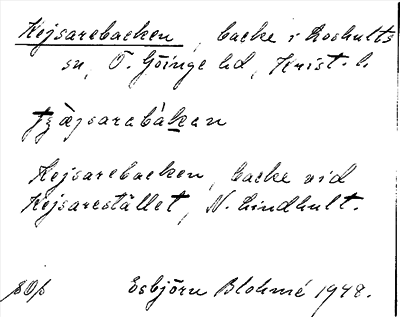 Kejsarebacken, backe i Loshults
sn, Ö. Göinge hd, Krist. l.
tʒàjsarabákan
Kejsarebacken, backe vid
Kejsarestället, N. Lindhult.
SOp Esbjörn Blohmé 1948.